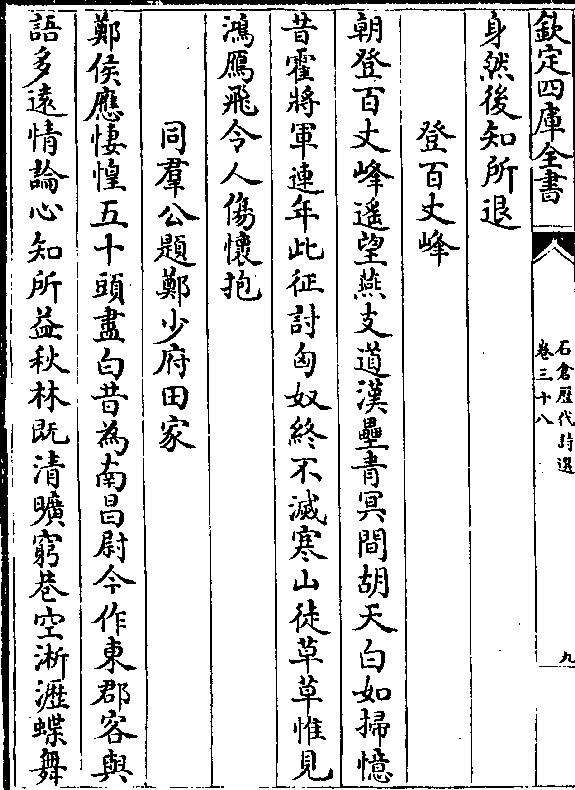 欽定四庫全書
石倉歷代詩選
卷三十八
九
身然後知所退
登百丈峰
朝登百丈峰遥望燕支道漢壘青冥間胡天白如掃憶
昔霍將軍連年此征討匈奴終不滅寒山徒草草惟見
鴻鴈飛令人傷懷抱
同羣公題鄭少府田家
鄭侯應悽惶五十頭盡白昔為南昌尉今作東郡客與
語多遠情論心知所益秋林既清曠窮巷空淅瀝蝶舞